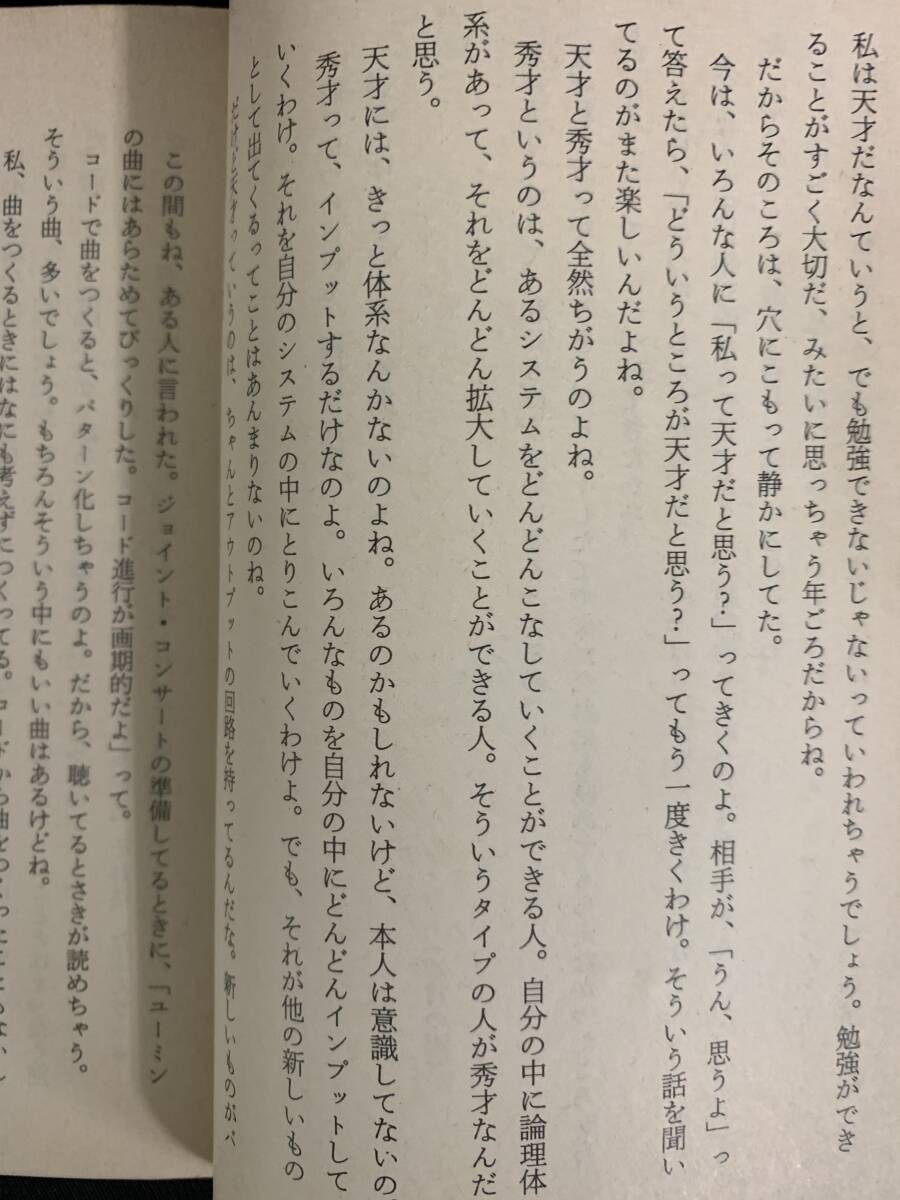 私は天才だなんていうと、でも勉強できないじゃないっていわれちゃうでしょう。勉強ができ
ることがすごく大切だ、みたいに思っちゃう年ごろだからね。
だからそのころは、穴にこもって静かにしてた。
今は、いろんな人に「私って天才だと思う?」ってきくのよ。相手が、「うん、思うよ」っ
て答えたら、「どういうところが天才だと思う?」ってもう一度きくわけ。そういう話を聞い
てるのがまた楽しいんだよね。
天才と秀才って全然ちがうのよね。
秀才というのは、あるシステムをどんどんこなしていくことができる人。自分の中に論理体
系があって、それをどんどん拡大していくことができる人。そういうタイプの人が秀才なんだ
と思う。
天才には、きっと体系なんかないのよね。あるのかもしれないけど、本人は意識してないの。
秀才って、インプットするだけなのよ。いろんなものを自分の中にどんどんインプットして
いくわけ。それを自分のシステムの中にとりこんでいくわけよ。でも、それが他の新しいもの
として出てくるってことはあんまりないのね。
だけど天才っていうのは、ちゃんとアウトプットの回路を持ってるんだな。新しいものがパ
この間もね、ある人に言われた。ジョイント・コンサートの準備してるときに、「ユーミン
の曲にはあらためてびっくりした。コード進行が画期的だよ」って。
コードで曲をつくると、パターン化しちゃうのよ。だから、聴いてるとさきが読めちゃう。
そういう曲、多いでしょう。もちろんそういう中にもいい曲はあるけどね。
私、曲をつくるときにはなにも考えずにつくってる。コードから曲をつくったことも